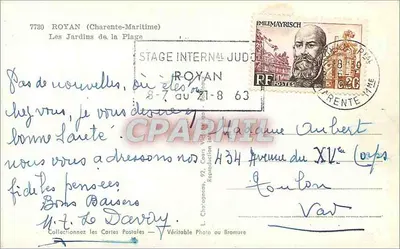 7720 ROYAN (Charente-Maritime)
Les Jardins de la Plage
STAGE INTERNal JUDO
ROYAN
8-7 au 21-8 63
EMILE MAYRISCH
RF
POSTES
CHARENTE-Mme
Pas de nouvelles, où êtes
chez vous, je vous
bonne Santé
nous vous adressons nos
fidèles pensées
Bons Baisers
M. Z. Le Davay
Madame Aubert
434 Avenue du XVe Corps
Toulon
Var
CPARAMA
Collectionnez les Cartes Postales - Véritable Photo au Bromure